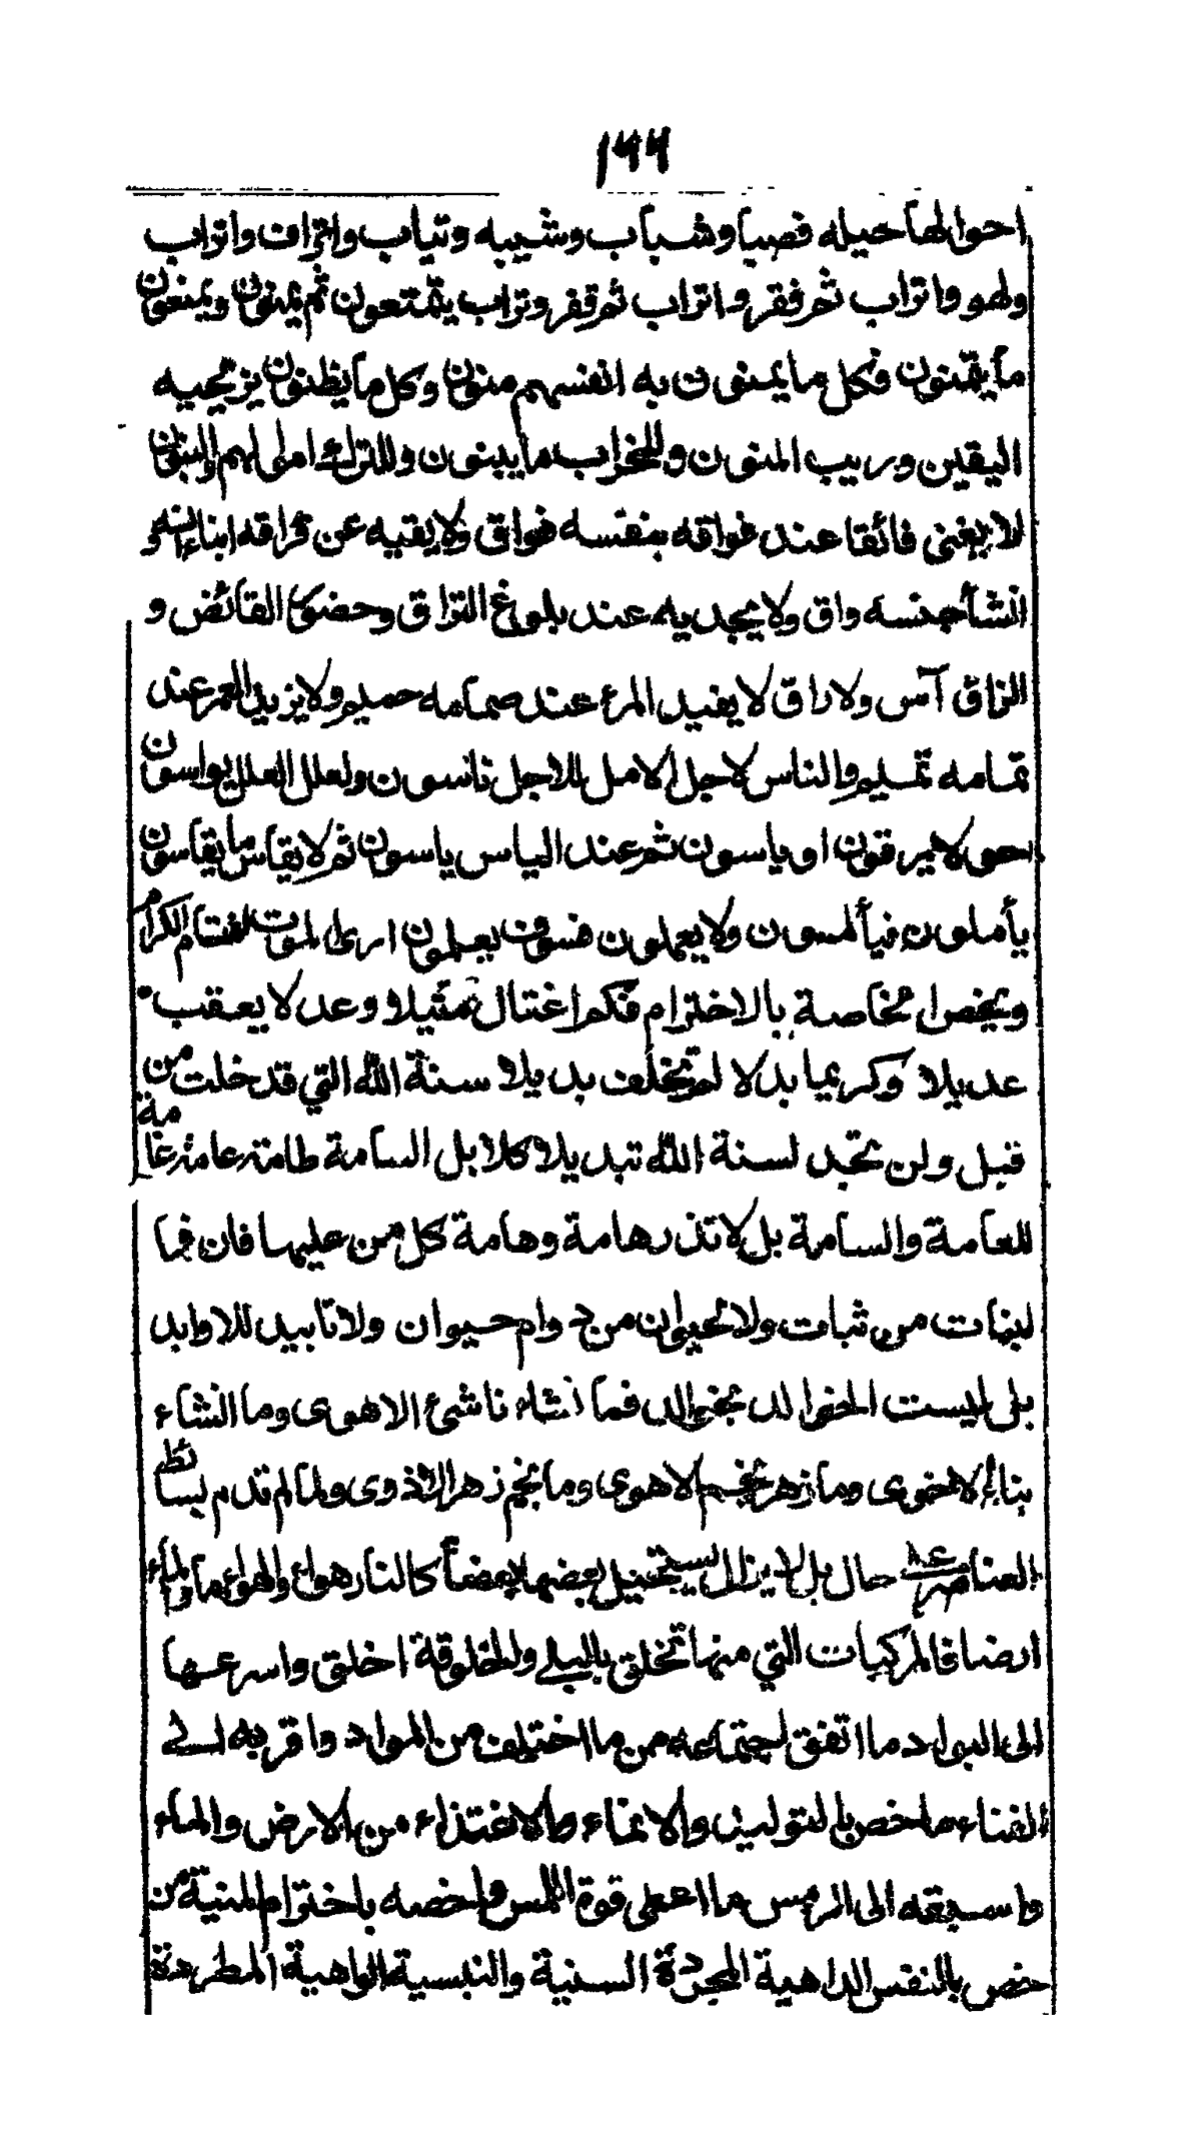 ١٦٦
احوالها حيله فصبا وشباب وشيبه وتياب واتراف واتراب
ولهو واتراب ثم فقر واتراب ثم قفر وتراب يتمتعون ثم يمنون ويمنعون
ما يتمنون فكل ما يمنون به انفسهم منون وكل ما يظنون يزجيه
اليقين وريب المنون وللخراب ما يبنون وللتراب لهم والبنون
لا يغني فائقا عند فواقه بنفسه فواق ولا يقيه عن فراقه ابناء
انشأ جنسه واق ولا يجديه عند بلوغ التراق وحضور القائض و
الزاق آس ولا راق لا يفيد المرء عند حمامه حميم ولا يزيل العمر عند
تمامه تميم والناس لاجل الامل للاجل ناسون ولعلل العلل يواسون
لا يرقون او ياسون ثم عند الياس ياسون ثم لا يقاس ما يقاسون
يأملون فيألمسون ولا يعملون فسوف يعلمون ارى الموت لغتام الكرام
ويخص خاصة بالاخترام فكم اغتال مثيلا وعد لا يعقب
عديلا وكريما بدلا لم يخلف بديلا سنة الله التي قد خلت من
قبل ولن تجد لسنة الله تبديلا كلا بل السامة طامة عامة غامة
للعامة والسامة بل لا تذر هامة وهامة كل من عليها فان فما
لنبات من ثبات ولا لحيوان من دوام حيوان ولا تابيد للاوابد
بلى ليست الخوالد بخوالد فما انشاء ناشئ الا هوى وما انشاء
بناء الا خوى وما زهر نجم الا هوى وما نجم زهر الا ذوى ولما لم تدم بسائط
العناصر على حال بل لا يزال يستحيل بعضها بعضا كالنار هواء والهواء ماء والماء
ارضا فالمركبات التي منها تخلق بالبلى وللخلوقة اخلق واسرعها
الى البواد ما اتفق اجتماعه من ما اختلف من المواد واقربه الى
الفناء ما خص بالتوليد والانماء والاغتذاء من الارض والماء
واسبقه الى الرمس ما اعطى قوة اللمس واخصه باخترام المنية من
خص بالنفس الداهية المجردة السنية والنبسية الواهية